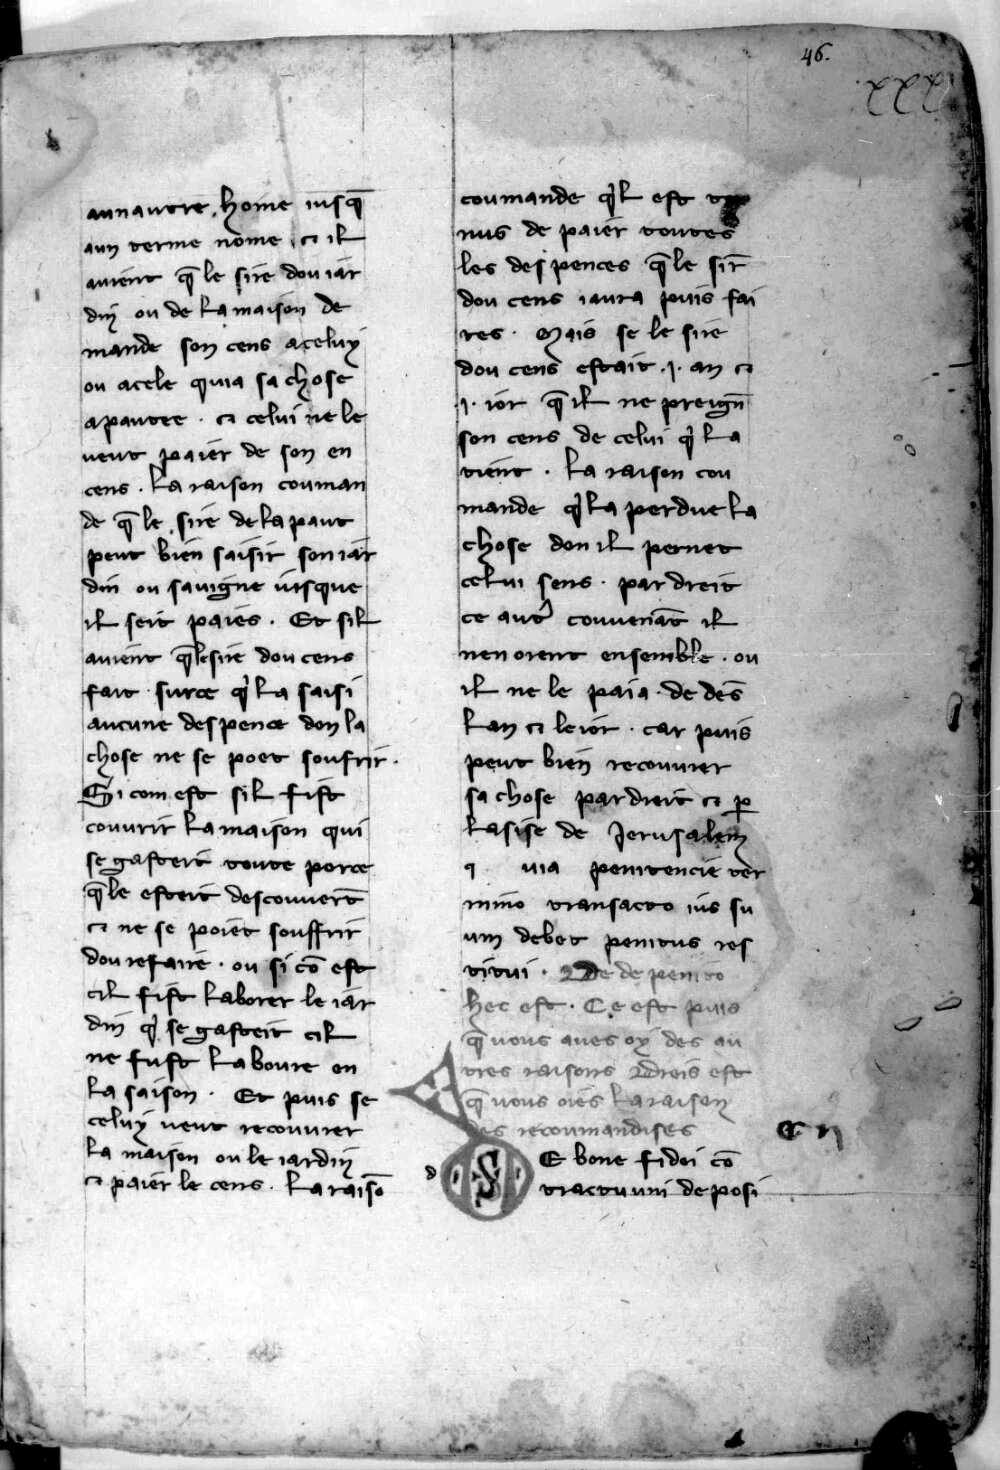 46.
xxx
aun autre home iusq̃
aun terme nome ⁊ il
auient q̃ le sire dou iar
din ou de la maison de
mande son cens a celuy
ou a cele qui a sa chose
a pautee . ⁊ celui ne le
ueut paier de son en
cens . La raison couman
de q̃ le sire de la paut
peut bien saisir son iar
din ou sa uigne iusque
il seit paies . Et sil
auient q̃ le sire dou cens
fait sur ce qͥ la saisi
aucune despence don la
chose ne se poet soufrir .
Si com est sil fist
couurir la maison qui
se gasteit toute por ce
q̃le esteit descouuert̃
⁊ ne se poiet souffrir
dou refaire . ou si cõ est
cil fist laborer le iar
din qͥ se gasteit cil
ne fust laboure en
la saison . Et puis se
celuy ueut recouurer
la maison ou le iardin
⁊ paier le cens . La raisõ
coumande qͥl est te
nus de paier toutes
les despences q̃ le sir̃
dou cens i aura puis fai
tes . Mais se le sire
dou cens estait .j. an ⁊
.j. ior q̃ il ne preign̄
son cens de celui qͥ la
tient . La raison cou
mande qͥ la perdue la
chose don il pernet
celui sens . par dreit
ce autͬ conuenãt il
nen orent ensemble . ou
il ne le paia . de dẽs
lan ⁊ le ior . car puis
peut bien recouurer
sa chose par dreit ⁊ ꝑ
lasise de Jerusalem
q uia penitencie ter
mino transacto ius su
um debet penitus res
titui . De de penito
hec est . Ce est puis
q̃ uous aues oy des au
tres raisons dreis est
q̃ uous oies la raison
des recoumandises
en
d
S E bone fidei cõ
tractuum de posi